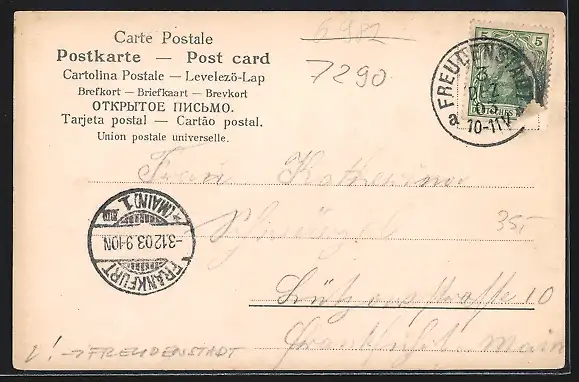 Carte Postale
Postkarte — Post card
Cartolina Postale — Levelező-Lap
Brefkort — Briefkaart — Brevkort
ОТКРЫТОЕ ПИСЬМО.
Tarjeta postal — Cartão postal.
Union postale universelle.
6982
7290
5 5
FREUDENSTADT
3
03
10-11V
a
Frau Katharina
35,-
(MAIN) 1
-3.12.03.9-10N.
FRANKFURT
Lützowstraße 10
Frankfurt Main
! → FREUDENSTADT